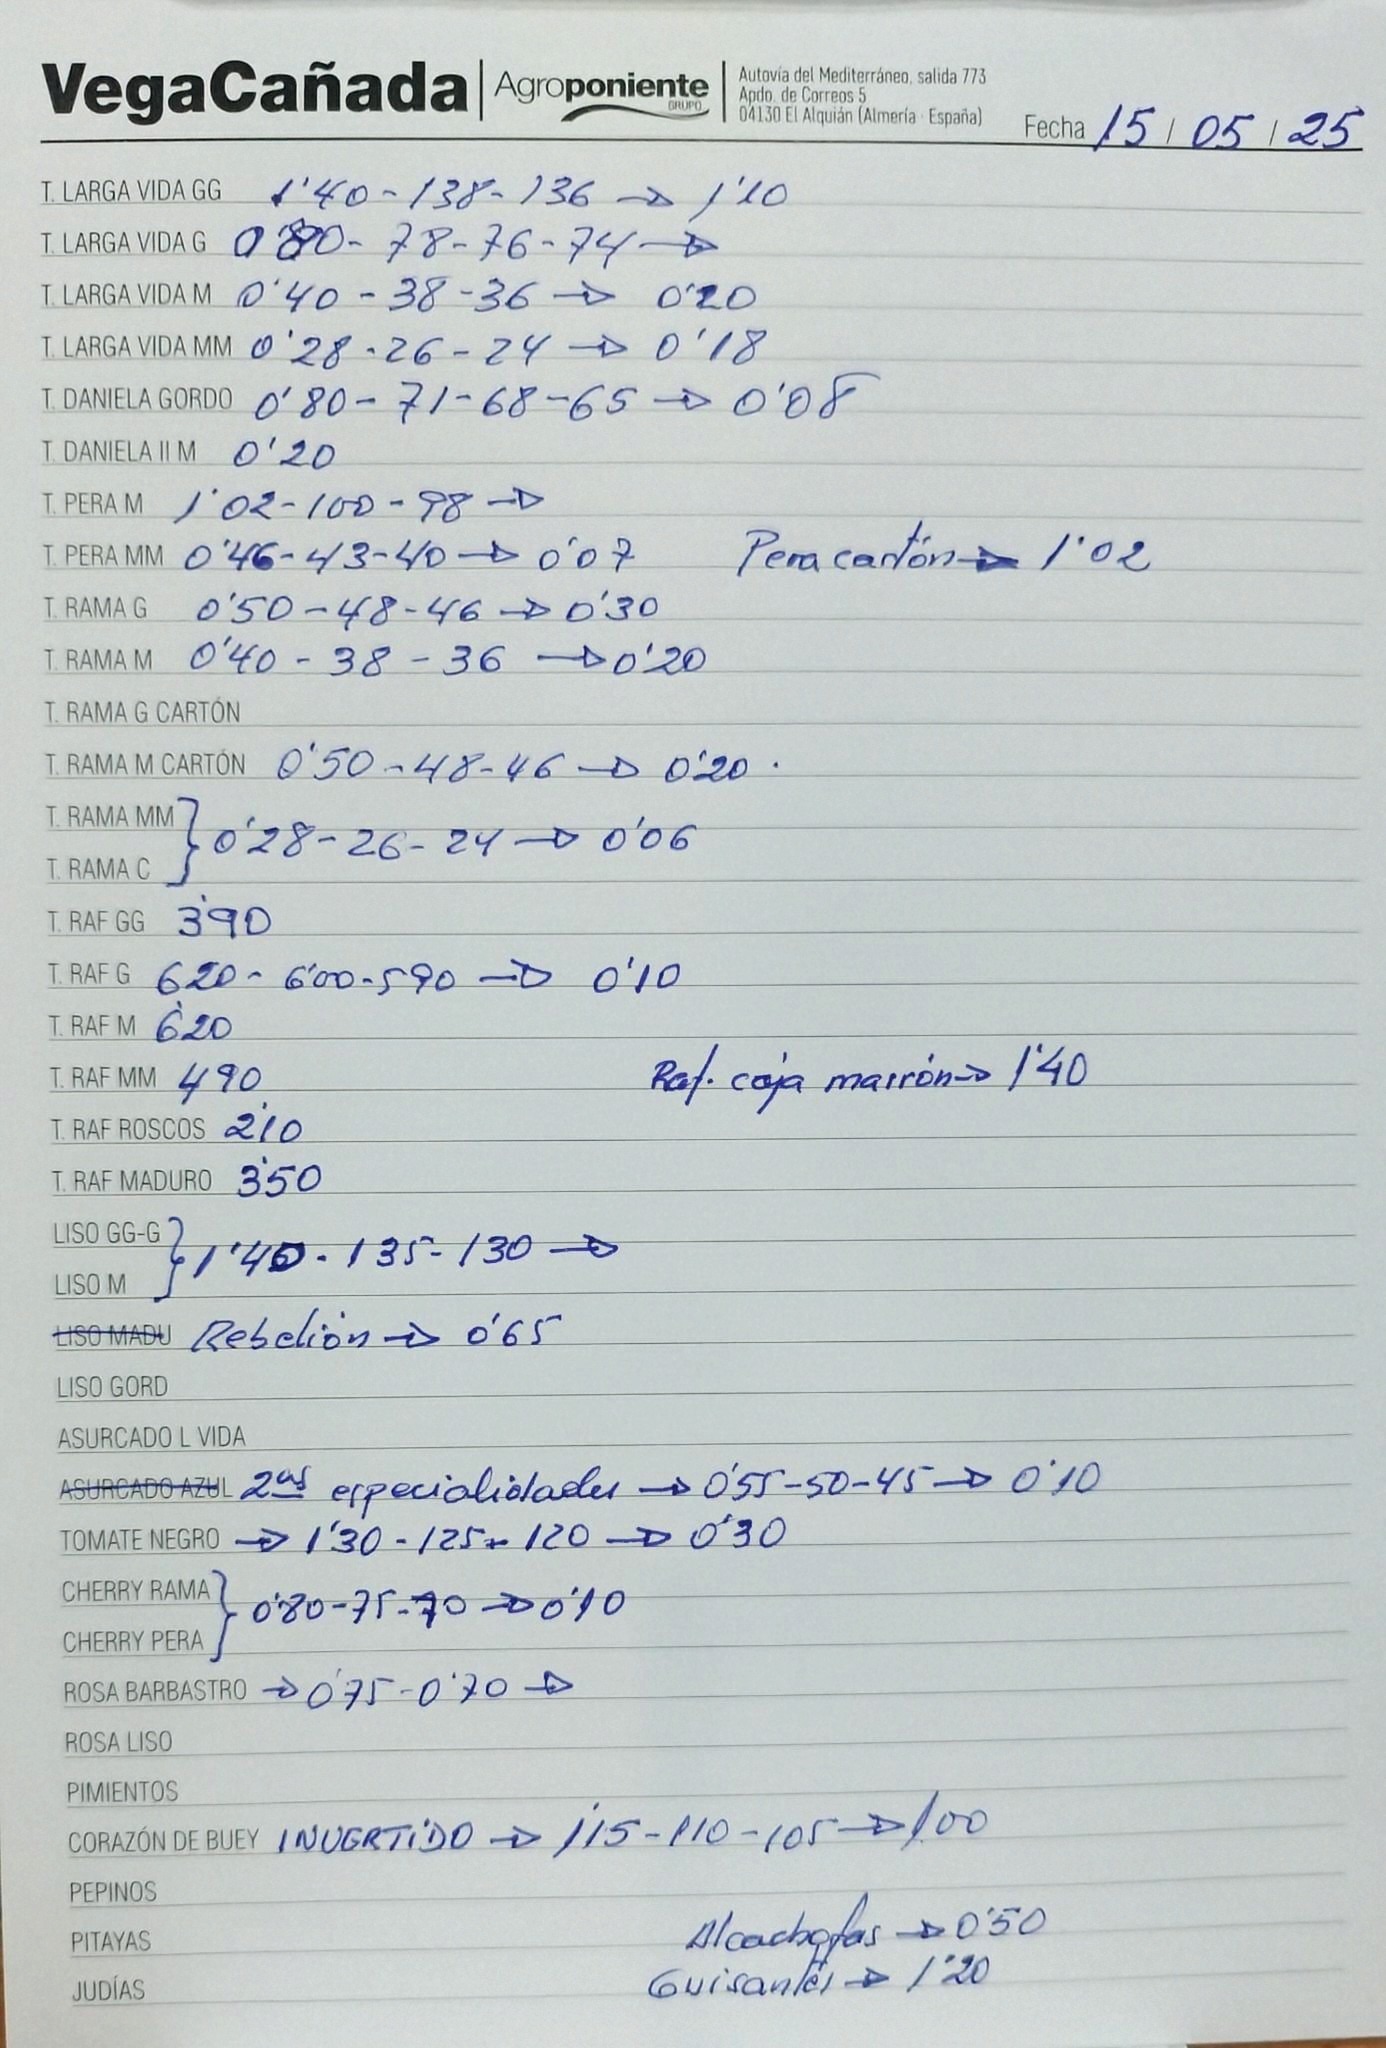 VegaCañada
Agroponiente
GRUPO
Autovía del Mediterráneo, salida 773
Apdo. de Correos 5
04130 El Alquián (Almería · España)
Fecha 15 / 05 / 25
T. LARGA VIDA GG 1'40 - 138 - 136 → 1'10
T. LARGA VIDA G 0'80 - 78 - 76 - 74 →
T. LARGA VIDA M 0'40 - 38 - 36 → 0'20
T. LARGA VIDA MM 0'28 - 26 - 24 → 0'18
T. DANIELA GORDO 0'80 - 71 - 68 - 65 → 0'08
T. DANIELA II M 0'20
T. PERA M 1'02 - 100 - 98 →
T. PERA MM 0'46 - 43 - 40 → 0'07 Pera cartón → 1'02
T. RAMA G 0'50 - 48 - 46 → 0'30
T. RAMA M 0'40 - 38 - 36 → 0'20
T. RAMA G CARTÓN
T. RAMA M CARTÓN 0'50 - 48 - 46 → 0'20.
T. RAMA MM
} 0'28 - 26 - 24 → 0'06
T. RAMA C
T. RAF GG 3'90
T. RAF G 620 - 6'00 - 590 → 0'10
T. RAF M 6'20
T. RAF MM 490 Raf. caja marrón → 1'40
T. RAF ROSCOS 2'10
T. RAF MADURO 3'50
LISO GG-G
} 1'40 - 135 - 130 →
LISO M
LISO MADU Rebelión → 0'65
LISO GORD
ASURCADO L VIDA
ASURCADO AZUL 2as especialidades → 0'55 - 50 - 45 → 0'10
TOMATE NEGRO → 1'30 - 125 - 120 → 0'30
CHERRY RAMA
} 0'80 - 75 - 70 → 0'10
CHERRY PERA
ROSA BARBASTRO → 0'75 - 0'70 →
ROSA LISO
PIMIENTOS
CORAZÓN DE BUEY INVERTIDO → 1'15 - 110 - 105 → 1'00
PEPINOS
PITAYAS Alcachofas → 0'50
JUDÍAS Guisantes → 1'20